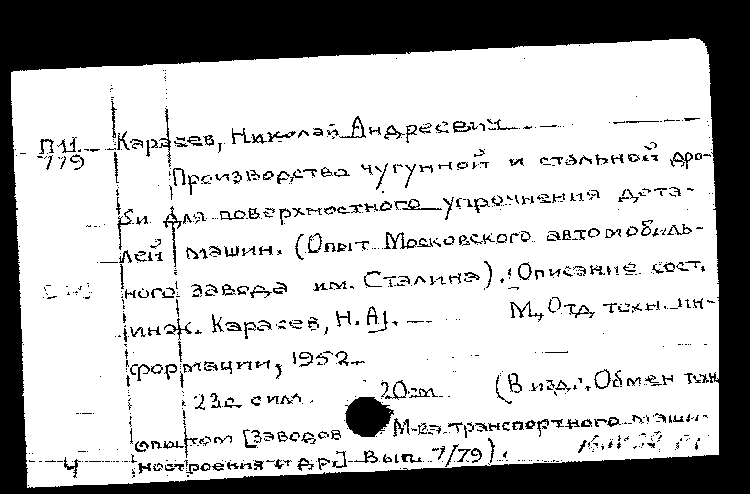 П11
779
Карасев, Николай Андреевич
Производство чугунной и стальной дро-
би для поверхностного упрочнения дета-
лей машин. (Опыт Московского автомобиль-
ного завода им. Сталина). [Описание сост.
инж. Карасев, Н.А]. — М., Отд. техн. ин-
формации, 1952.
23 с. с илл. 20 см. (В изд.: Обмен техн.
опытом [Заводов М-ва транспортного маши-
ностроения и др.] Вып. 7/79).
4